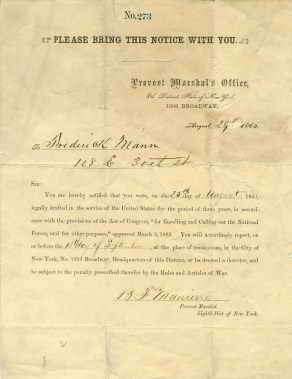 No. 273
PLEASE BRING THIS NOTICE WITH YOU.
Provost Marshal's Office,
8th District, State of New York,
1803 BROADWAY.
August 29th 1863.
To Frederick Mann
108 E 30th st.
Sir:
You are hereby notified that you were, on the 25th day of August, 1863,
legally drafted in the service of the United States for the period of three years, in accordance
with the provisions of the Act of Congress, "for Enrolling and Calling out the National
Forces, and for other purposes," approved March 3, 1863. You will accordingly report, on
or before the day of, at the place of rendezvous, in the City of
New York, No. Broadway, Headquarters of this District, or be deemed a deserter, and
be subject to the penalty prescribed therefor by the Rules and Articles of War.
B F Manierre
Provost Marshal
Eighth Dist. of New York.